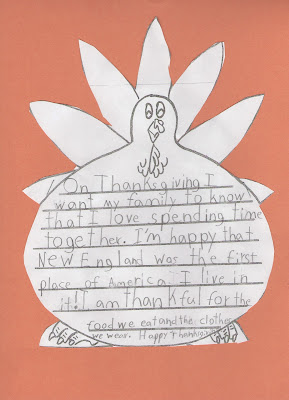 On Thanksgiving I
want my family to know
that I love spending time
together. I'm happy that
New England was the first
place of America. I live in
it! I am thankful for the
food we eat and the clothes
we wear. Happy Thanksg